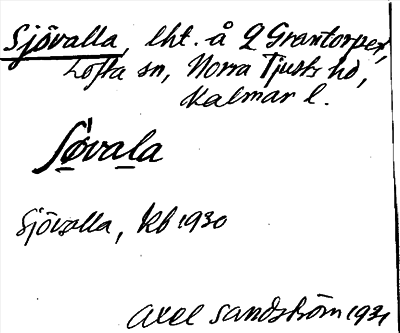 Sjövalla, lht. å Q Grantorpet,
Lofta sn, Norra Tjusts hd,
Kalmar l.
Søvala
Sjövalla, kb 1930
Axel Sandström 1931